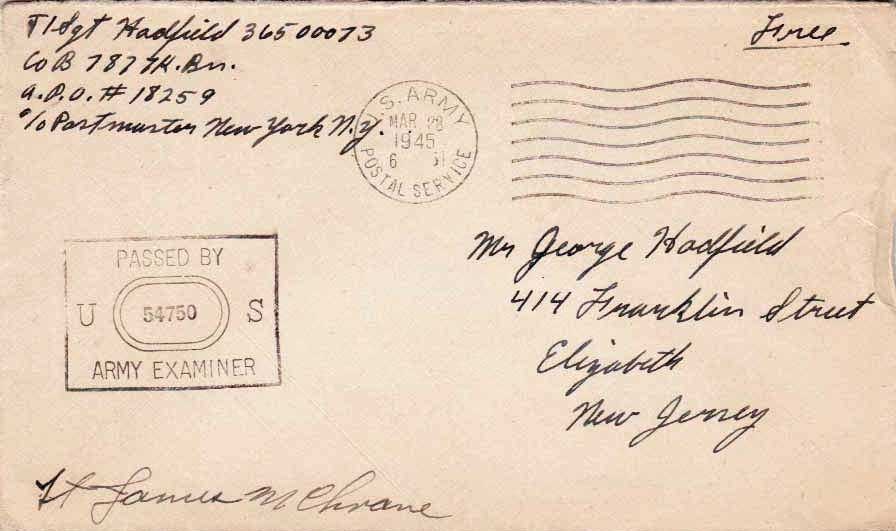 T/Sgt Hadfield 36500073
Co B 787 Tk. Bn.
A.P.O. # 18259
c/o Postmaster New York N.Y.
Free
U.S. ARMY
MAR 28
1945
POSTAL SERVICE
PASSED BY
U 54750 S
ARMY EXAMINER
Mr George Hadfield
414 Franklin Street
Elizabeth
New Jersey
Lt James